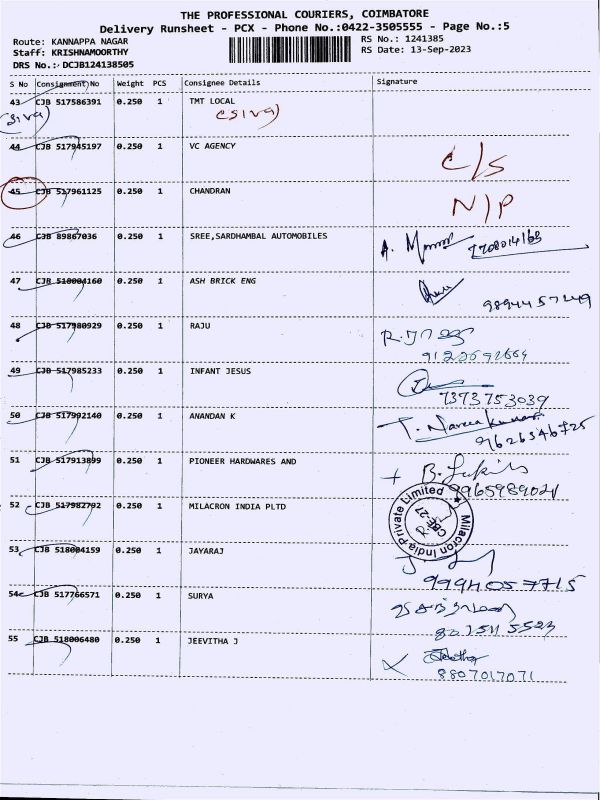 THE PROFESSIONAL COURIERS, COIMBATORE
Delivery Runsheet - PCX - Phone No.:0422-3505555 - Page No.:5
Route: KANNAPPA NAGAR RS No.: 1241385
Staff: KRISHNAMOORTHY RS Date: 13-Sep-2023
DRS No.: DCJB124138505
S No Consignment No Weight PCS Consignee Details Signature
43 CJB 517586391 0.250 1 TMT LOCAL
(Siva) (Siva)
44 CJB 517945197 0.250 1 VC AGENCY C/S
45 CJB 517961125 0.250 1 CHANDRAN N/P
46 CJB 89867036 0.250 1 SREE,SARDHAMBAL AUTOMOBILES A.
47 CJB 518004160 0.250 1 ASH BRICK ENG
48 CJB 517980929 0.250 1 RAJU
49 CJB 517985233 0.250 1 INFANT JESUS
7373753039
50 CJB 517992140 0.250 1 ANANDAN K T.
9626546725
51 CJB 517913899 0.250 1 PIONEER HARDWARES AND B.
9965989021
52 CJB 517982792 0.250 1 MILACRON INDIA PLTD
Milacron India Private Limited
CBE-27
53 CJB 518004159 0.250 1 JAYARAJ
9994057715
54 CJB 517766571 0.250 1 SURYA
55 CJB 518006480 0.250 1 JEEVITHA J
8807017071